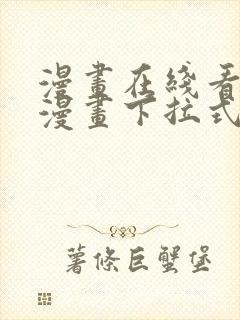 漫畫在綫看
漫畫下拉式
薯條巨蟹堡